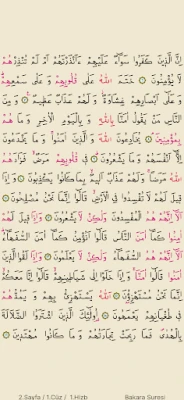 إِنَّ الَّذِينَ كَفَرُوا سَوَاءٌ عَلَيْهِمْ ءَأَنْذَرْتَهُمْ أَمْ لَمْ تُنْذِرْهُمْ
لَا يُؤْمِنُونَ ۞ خَتَمَ اللهُ عَلَى قُلُوبِهِمْ وَ عَلَى سَمْعِهِمْ
وَ عَلَى أَبْصَارِهِمْ غِشَاوَةٌ وَ لَهُمْ عَذَابٌ عَظِيمٌ ۞ وَ مِنَ
النَّاسِ مَنْ يَقُولُ آمَنَّا بِاللهِ وَ بِالْيَوْمِ الْآخِرِ وَ مَا هُمْ
بِمُؤْمِنِينَ ۞ يُخَادِعُونَ اللهَ وَ الَّذِينَ آمَنُوا وَ مَا يَخْدَعُونَ
إِلَّا أَنْفُسَهُمْ وَ مَا يَشْعُرُونَ ۞ فِي قُلُوبِهِمْ مَرَضٌ فَزَادَهُمُ
اللهُ مَرَضًا وَ لَهُمْ عَذَابٌ أَلِيمٌ بِمَا كَانُوا يَكْذِبُونَ ۞ وَ إِذَا
قِيلَ لَهُمْ لَا تُفْسِدُوا فِي الْأَرْضِ قَالُوا إِنَّمَا نَحْنُ مُصْلِحُونَ ۞
أَلَا إِنَّهُمْ هُمُ الْمُفْسِدُونَ وَلَكِنْ لَا يَشْعُرُونَ ۞ وَ إِذَا قِيلَ لَهُمْ
آمِنُوا كَمَا آمَنَ النَّاسُ قَالُوا أَنُؤْمِنُ كَمَا آمَنَ السُّفَهَاءُ
أَلَا إِنَّهُمْ هُمُ السُّفَهَاءُ وَلَكِنْ لَا يَعْلَمُونَ ۞ وَ إِذَا لَقُوا الَّذِينَ
آمَنُوا قَالُوا آمَنَّا وَ إِذَا خَلَوْا إِلَى شَيَاطِينِهِمْ قَالُوا إِنَّا مَعَكُمْ
إِنَّمَا نَحْنُ مُسْتَهْزِؤُنَ ۞ اللهُ يَسْتَهْزِئُ بِهِمْ وَ يَمُدُّهُمْ
فِي طُغْيَانِهِمْ يَعْمَهُونَ ۞ أُولَئِكَ الَّذِينَ اشْتَرَوُا الضَّلَالَةَ
بِالْهُدَى فَمَا رَبِحَتْ تِجَارَتُهُمْ وَ مَا كَانُوا مُهْتَدِينَ ۞
2.Sayfa / 1.Cüz / 1.Hizb Bakara Suresi